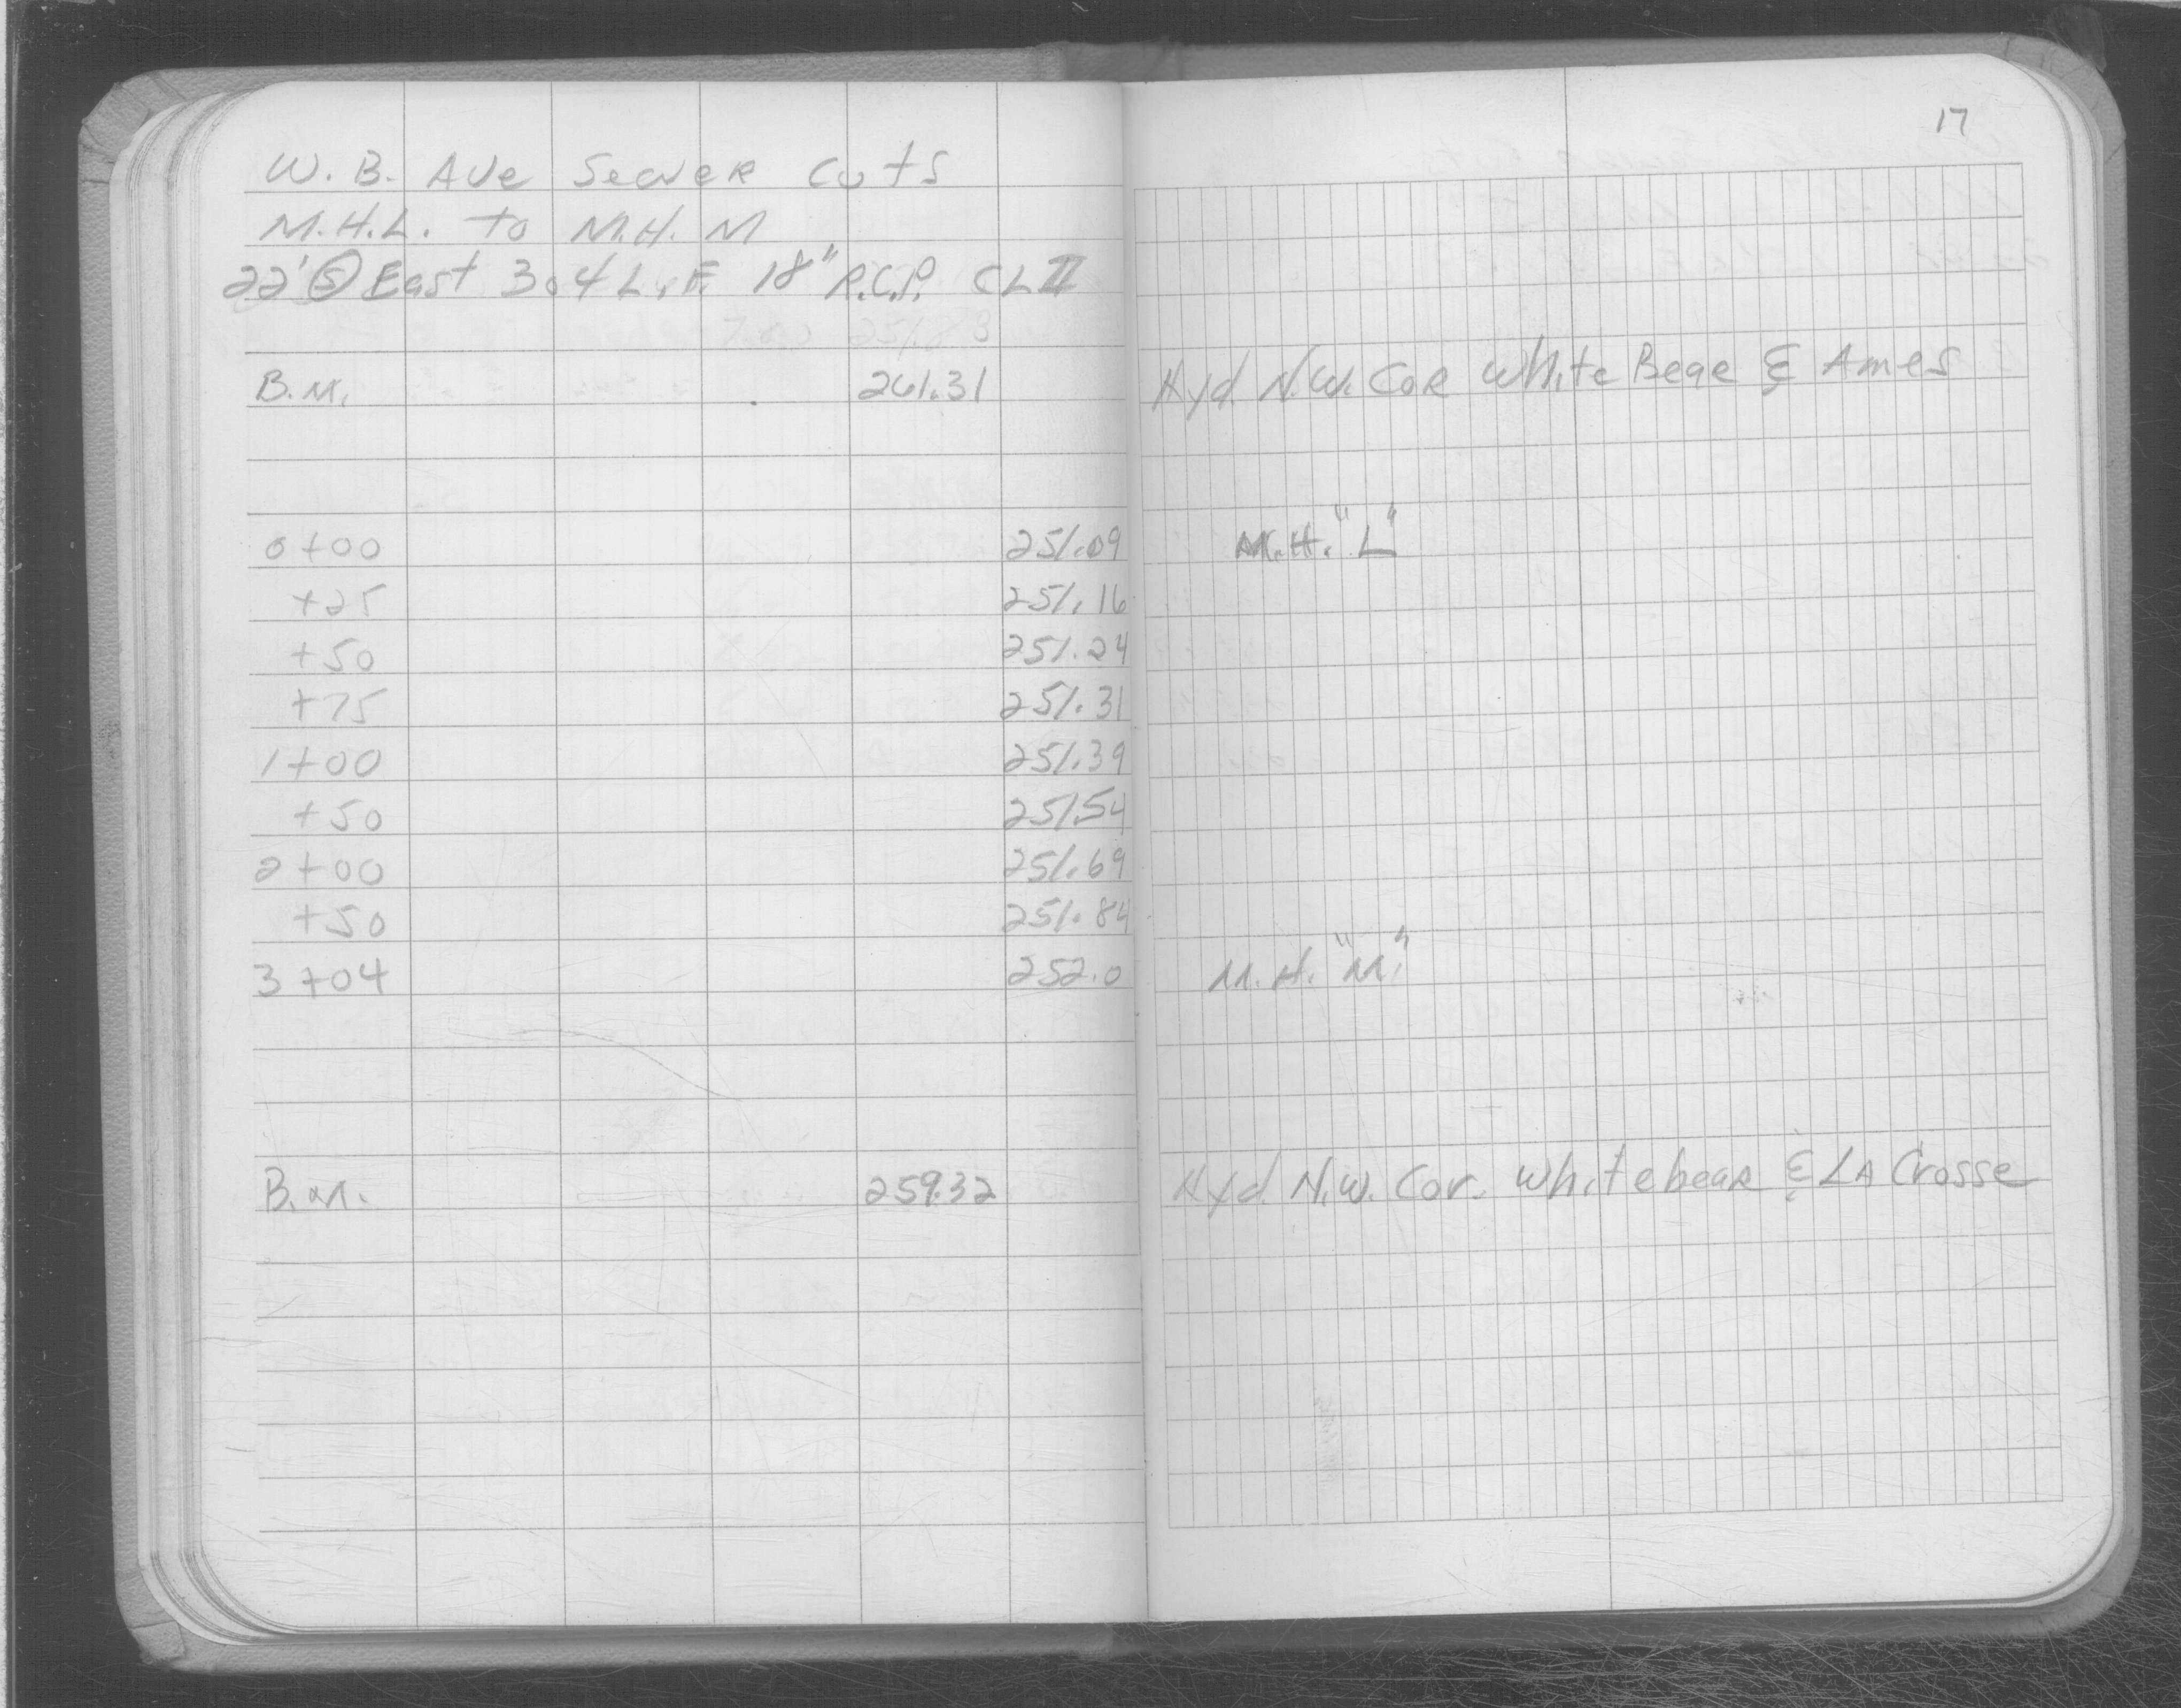 17
W. B. Ave Sewer Cuts
M.H.L. to M.H. M
22' Ⓢ East 304 L.F. 18" R.C.P. CL II
B.M. 261.31 Hyd. N.W. Cor White Bear & Ames
0+00 251.09 M.H. "L"
+25 251.16
+50 251.24
+75 251.31
1+00 251.39
+50 251.54
2+00 251.69
+50 251.84
3+04 252.0 M.H. "M"
B.M. 259.32 Hyd. N.W. Cor. Whitebear & LA Crosse